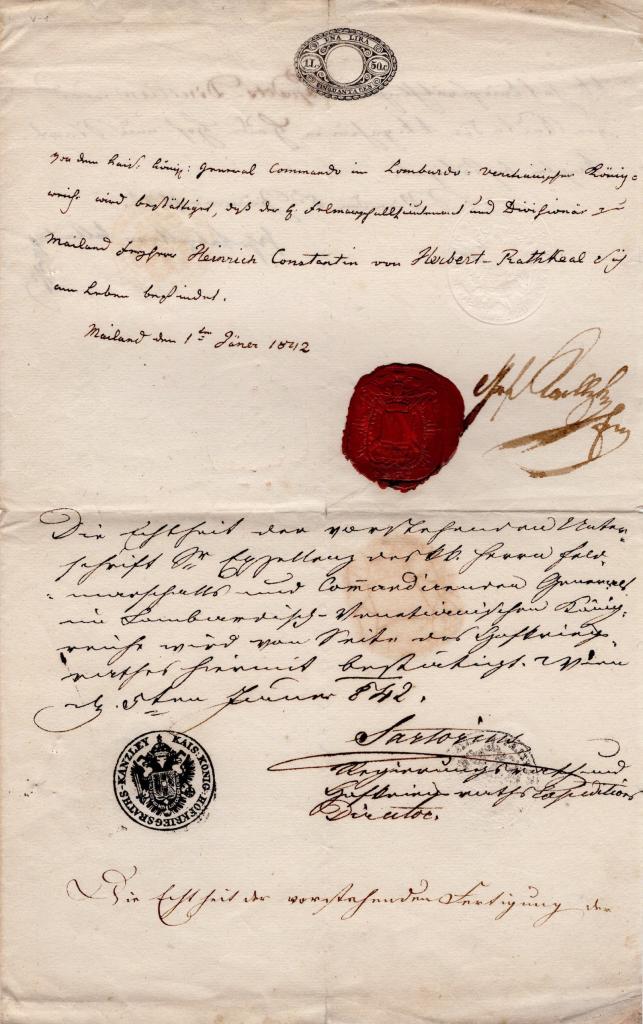 UNA LIRA
1.L. 50.C
CINQUANTA CEN
Von dem kais. könig: General Commando im Lombardo-venetianischen König-
reiche wird bestättiget, daß der H. Feldmarschallieutenant und Divisionär zu
Mailand Freyherr Heinrich Constantin von Herbert-Rathkeal sich
am Leben befindet.
Mailand den 1ten Jäner 1842
Die Echtheit der vorstehenden Unter-
schrift Sr Exzellenz des kk. Herrn Feld-
marschalls und Commandirenden Generals
im Lombardisch-Venetianischen König-
reiche wird von Seite des Hofkriegs-
rathes hiermit bestätigt. Wien
5ten Jänner 842.
Sartorius
KAIS. KÖNIG. HOFKRIEGSRATHS-KANZLEY
Regierungsrath und
Hofkriegsraths Expeditions
Director.
Die Echtheit der vorstehenden Fertigung der